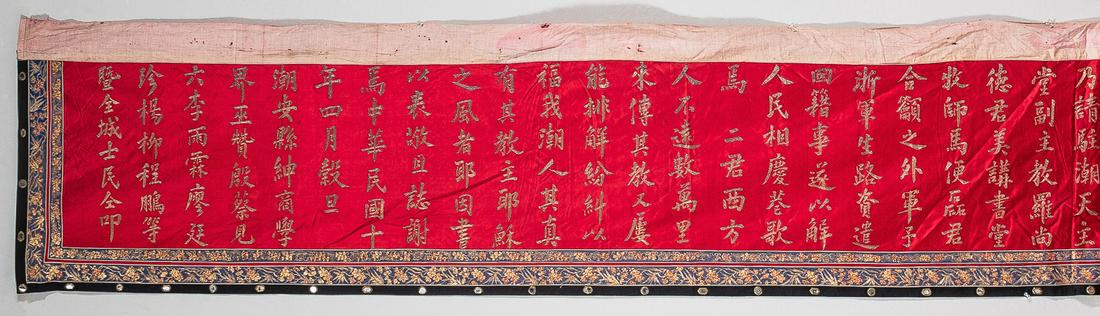 乃請駐潮天主
堂副主教羅尚
德君美講書堂
牧師馬便磊君
合籲之外軍子
浙軍生路資遣
回籍事遂以解
人民相慶巷歌
馬 二君西方
人不遠數萬里
來傳其教又屢
能排解紛糾以
福我潮人其真
有其教主耶穌
之風者耶因書
以表敬且誌謝
焉中華民國十
年四月穀旦
潮安縣紳商學
界王贊殷蔡見
六李雨霖廖廷
珍楊柳程鵬等
暨全城士民仝叩